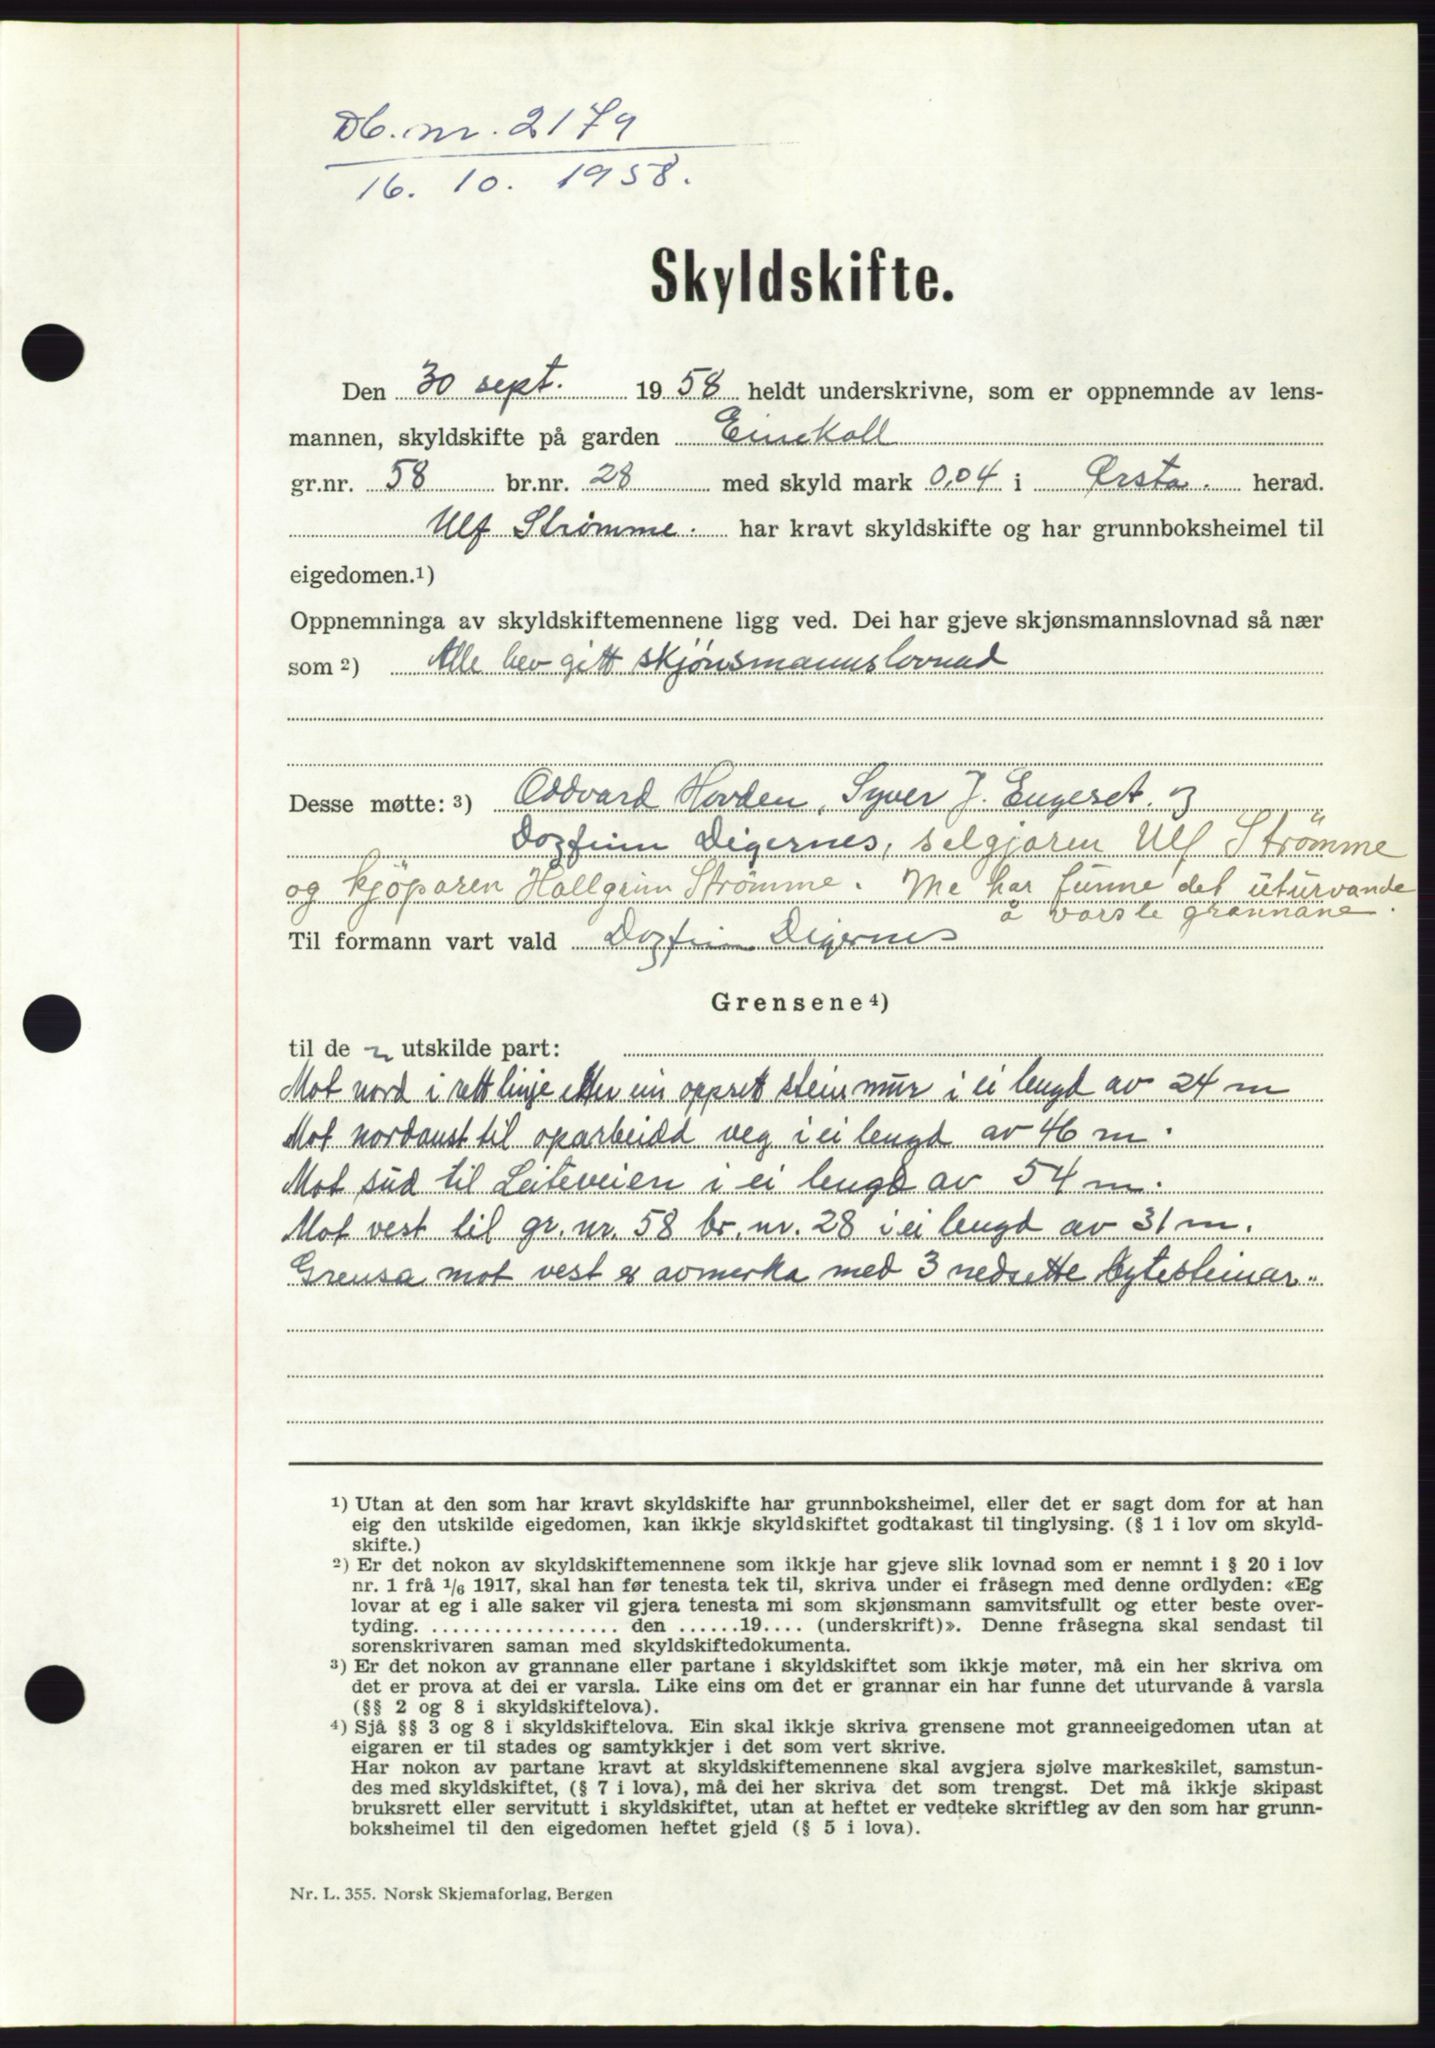 Db. nr. 2179
16. 10. 1958.
Skyldskifte.
Den 30 sept. 1958 heldt underskrivne, som er oppnemnde av lens-
mannen, skyldskifte på garden Einekoll
gr.nr. 58 br.nr. 28 med skyld mark 0,04 i Ørsta. herad.
Ulf Strømme. har kravt skyldskifte og har grunnboksheimel til
eigedomen.1)
Oppnemninga av skyldskiftemennene ligg ved. Dei har gjeve skjønsmannslovnad så nær
som 2) Alle hev gitt skjønsmannslovnad
Desse møtte: 3) Oddvard Hovden, Syver J. Engeset. og
Dagfinn Digernes, selgjaren Ulf Strömme
og kjöparen Hallgrim Strömme. Me har funne det uturvande
å varsle grannane.
Til formann vart vald Dagfinn Digernes
Grensene 4)
til de n utskilde part:
Mot nord i rett linje etter ein oppsett steinmur i ei lengd av 24 m
Mot nordaust til oparbeidd veg i ei lengd av 46 m.
Mot sud til Leiteveien i ei lengd av 54 m.
Mot vest til gr. nr. 58 br. nr. 28 i ei lengd av 31 m.
Grensa mot vest er avmerka med 3 nedsette bytesteinar.
1) Utan at den som har kravt skyldskifte har grunnboksheimel, eller det er sagt dom for at han
eig den utskilde eigedomen, kan ikkje skyldskiftet godtakast til tinglysing. (§ 1 i lov om skyld-
skifte.)
2) Er det nokon av skyldskiftemennene som ikkje har gjeve slik lovnad som er nemnt i § 20 i lov
nr. 1 frå 1/6 1917, skal han før tenesta tek til, skriva under ei fråsegn med denne ordlyden: «Eg
lovar at eg i alle saker vil gjera tenesta mi som skjønsmann samvitsfullt og etter beste over-
tyding. .................. den ......19.... (underskrift)». Denne fråsegna skal sendast til
sorenskrivaren saman med skyldskiftedokumenta.
3) Er det nokon av grannane eller partane i skyldskiftet som ikkje møter, må ein her skriva om
det er prova at dei er varsla. Like eins om det er grannar ein har funne det uturvande å varsla
(§§ 2 og 8 i skyldskiftelova).
4) Sjå §§ 3 og 8 i skyldskiftelova. Ein skal ikkje skriva grensene mot granneeigedomen utan at
eigaren er til stades og samtykkjer i det som vert skrive.
Har nokon av partane kravt at skyldskiftemennene skal avgjera sjølve markeskilet, samstun-
des med skyldskiftet, (§ 7 i lova), må dei her skriva det som trengst. Det må ikkje skipast
bruksrett eller servitutt i skyldskiftet, utan at heftet er vedteke skriftleg av den som har grunn-
boksheimel til den eigedomen heftet gjeld (§ 5 i lova).
Nr. L. 355. Norsk Skjemaforlag, Bergen